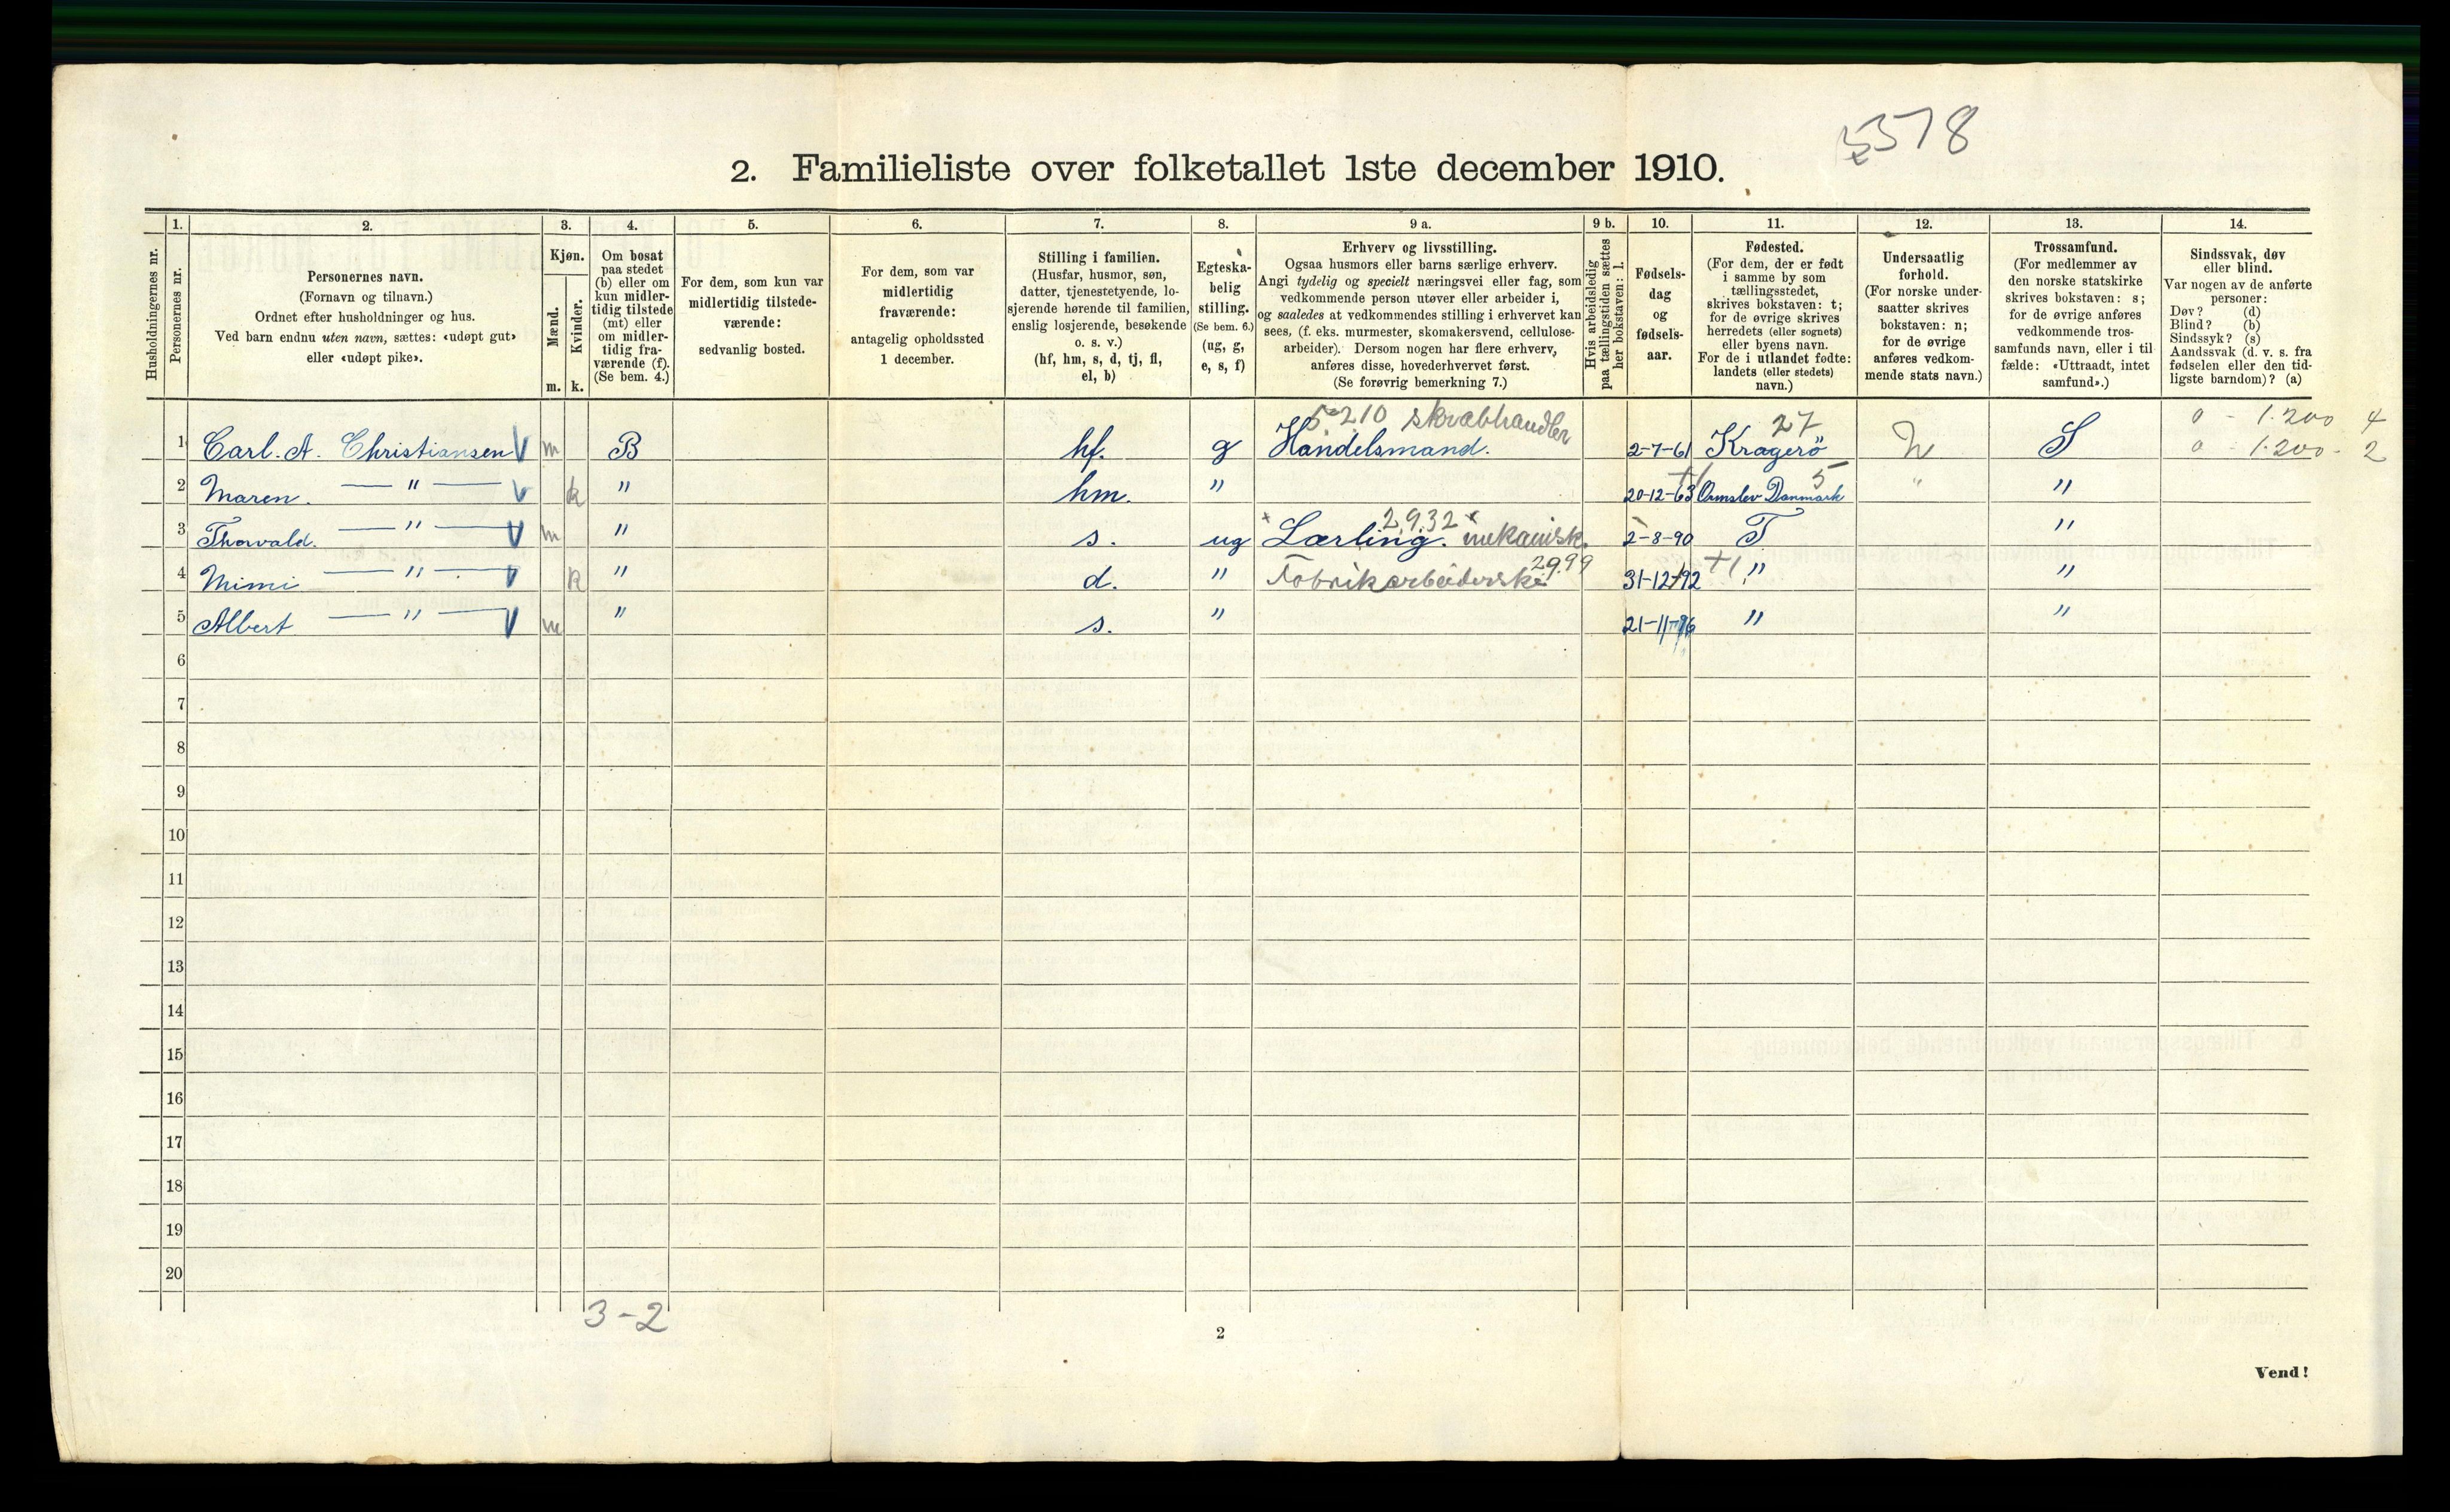 5378
2. Familieliste over folketallet 1ste december 1910.
Husholdningernes nr.
1. Personernes nr.
2. Personernes navn. (Fornavn og tilnavn.) Ordnet efter husholdninger og hus. Ved barn endnu uten navn, sættes: «udøpt gut» eller «udøpt pike».
3. Kjøn. Mænd. m. Kvinder. k.
4. Om bosat paa stedet (b) eller om kun midlertidig tilstede (mt) eller om midlertidig fraværende (f). (Se bem. 4.)
5. For dem, som kun var midlertidig tilstedeværende: sedvanlig bosted.
6. For dem, som var midlertidig fraværende: antagelig opholdssted 1 december.
7. Stilling i familien. (Husfar, husmor, søn, datter, tjenestetyende, losjerende hørende til familien, enslig losjerende, besøkende o. s. v.) (hf, hm, s, d, tj, fl, el, b)
8. Egteskabelig stilling. (Se bem. 6.) (ug, g, e, s, f)
9 a. Erhverv og livsstilling. Ogsaa husmors eller barns særlige erhverv. Angi tydelig og specielt næringsvei eller fag, som vedkommende person utøver eller arbeider i, og saaledes at vedkommendes stilling i erhvervet kan sees, (f. eks. murmester, skomakersvend, cellulosearbeider). Dersom nogen har flere erhverv, anføres disse, hovederhvervet først. (Se forøvrig bemerkning 7.)
9 b. Hvis arbeidsledig paa tællingstiden sættes her bokstaven: l.
10. Fødselsdag og fødselsaar.
11. Fødested. (For dem, der er født i samme by som tællingsstedet, skrives bokstaven: t; for de øvrige skrives herredets (eller sognets) eller byens navn. For de i utlandet fødte: landets (eller stedets) navn.)
12. Undersaatlig forhold. (For norske undersaatter skrives bokstaven: n; for de øvrige anføres vedkommende stats navn.)
13. Trossamfund. (For medlemmer av den norske statskirke skrives bokstaven: s; for de øvrige anføres vedkommende trossamfunds navn, eller i tilfælde: «Uttraadt, intet samfund».)
14. Sindssvak, døv eller blind. Var nogen av de anførte personer: Døv? (d) Blind? (b) Sindssyk? (s) Aandssvak (d. v. s. fra fødselen eller den tidligste barndom)? (a)
5.210 skrabhandler 27 0 - 1.200 4
1 Carl. A. Christiansen V m B hf. g Handelsmand. 2-7-61 Kragerö N S 0 - 1.200 - 2
2 Maren. — " — V k " hm. " 20-12-63 +1 Ormslev Danmark 5 " "
3 Thorvald. — " — V m " s. ug Lærling. mekanisk. 2932 2-8-90 T "
4 Mimi — " — V k " d. " Fabrikarbeiderske 2999 31-12-92 +1 " "
5 Albert — " — V m " s. " 21-11-96 " "
6
7
8
9
10
11
12
13
14
15
16
17
18
19
20
3-2
2
Vend!